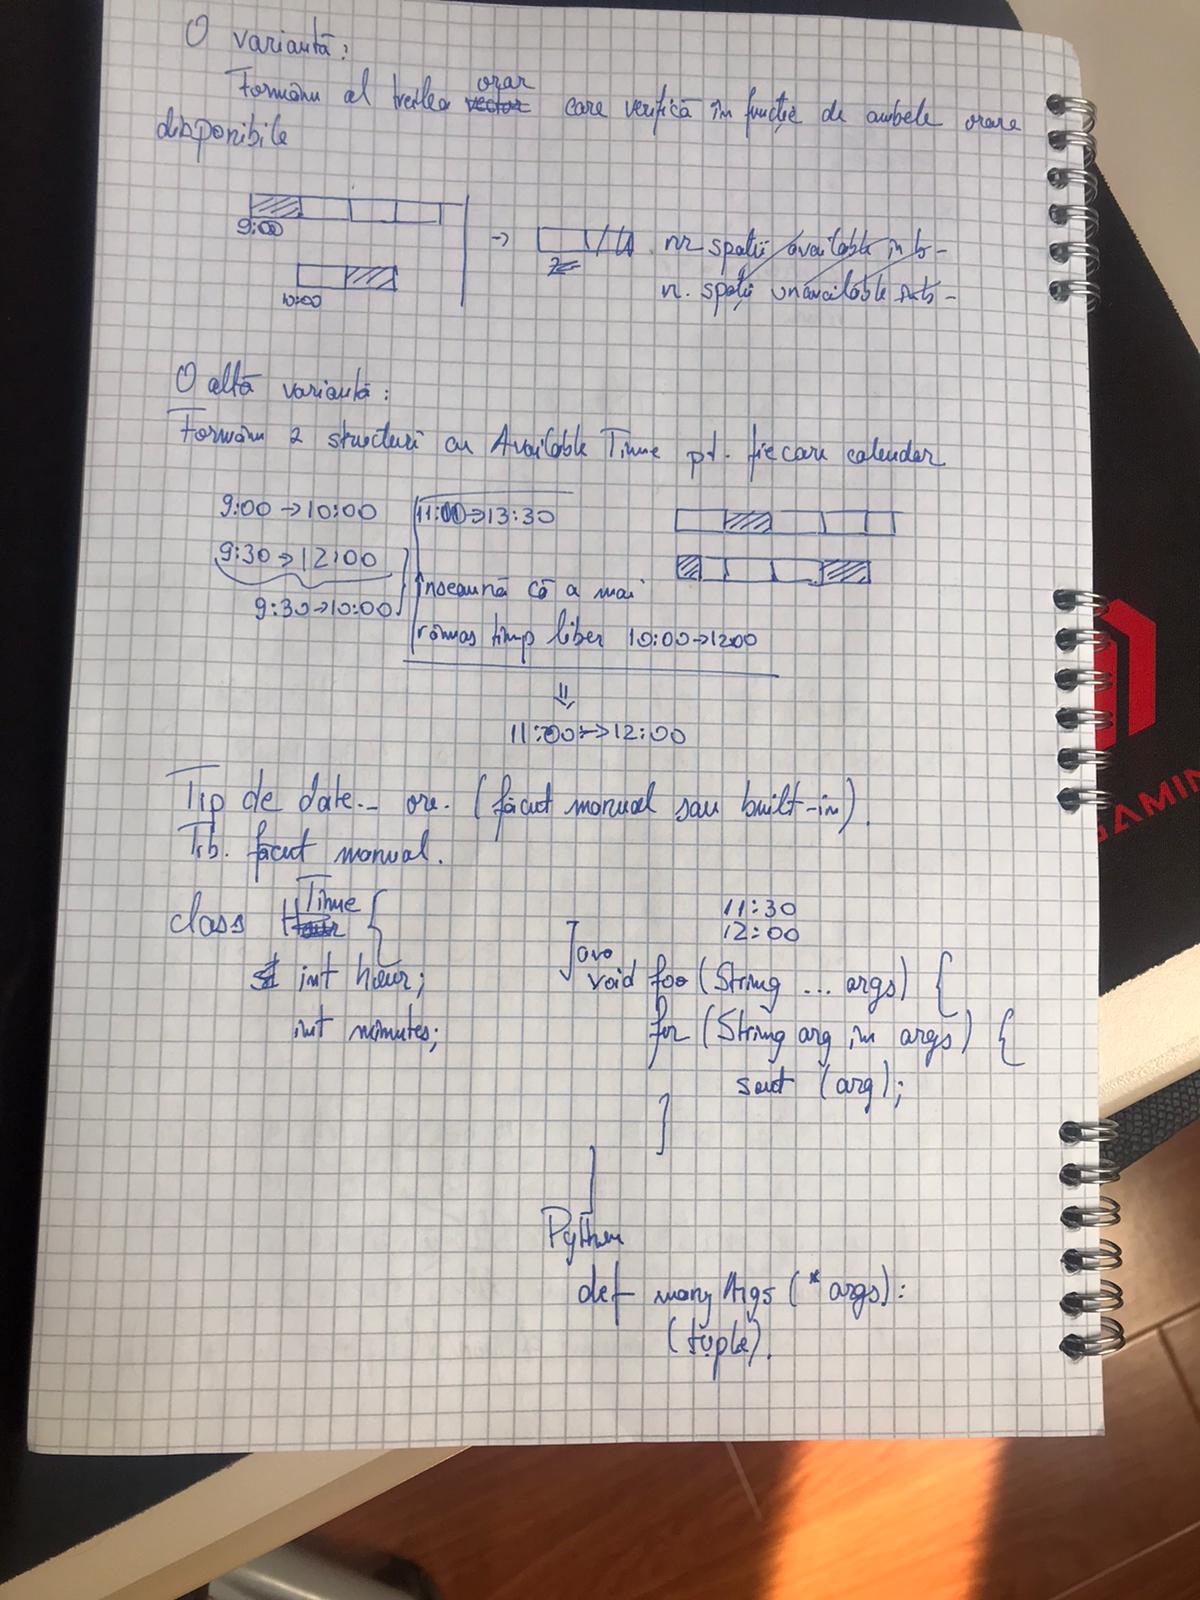 O variantă:
Formăm al treilea orar care verifică în funcție de ambele orare
disponibile
9:00
10:00
->
nr spații available into-
nr. spații unavailable into-
O altă variantă:
Formăm 2 structuri cu Available Time pt. fiecare calendar
9:00 -> 10:00
11:00 -> 13:30
9:30 -> 12:00
9:30 -> 10:00
înseamnă că a mai
rămas timp liber 10:00 -> 12:00
⇓
11:00 -> 12:00
Tip de date.. ore. (făcut manual sau built-in).
Tb. făcut manual.
class Time {
int hour;
int minutes;
11:30
12:00
Java
void foo (String ... args) {
for (String arg in args) {
sout (arg);
}
Python
def many Args (* args):
(tuple).
GAMIN